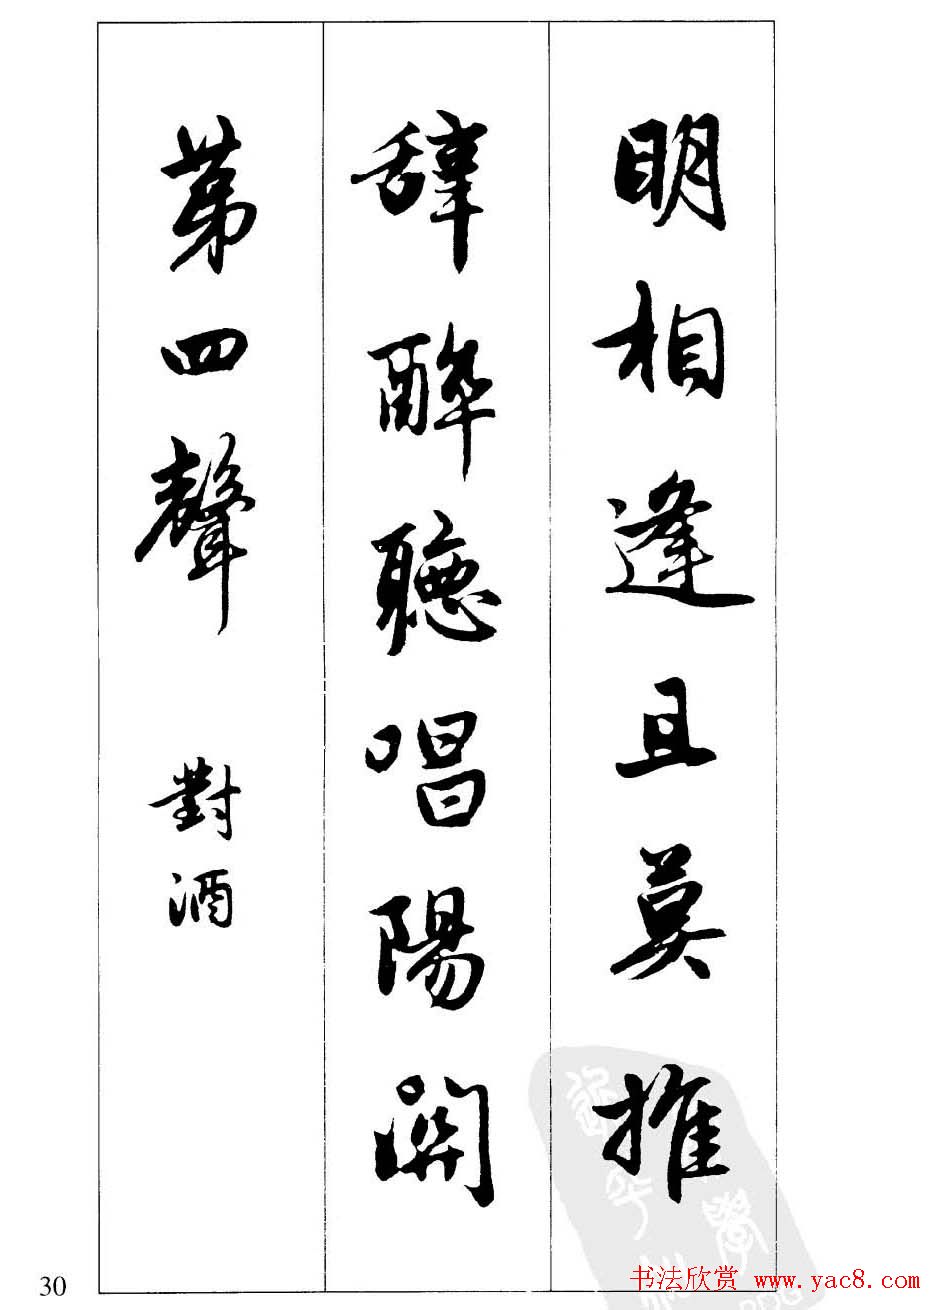 明相逢且莫推
辭醉聽唱陽關
第四聲 對酒
30
书法欣赏 www.yac8.com